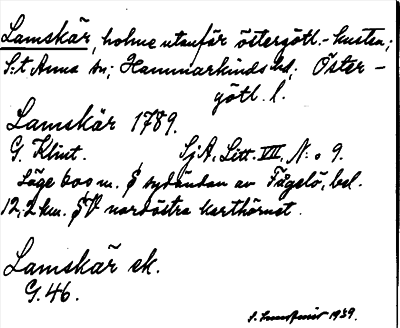 Lamskär, holme utanför östergötl.-kusten;
S:t Anna sn; Hammarkinds hd; Öster-
götl. l.
Lamskär 1789.
G. Klint. SjA, Litt. VII, N:o 9.
Läge 600 m. S sydändan av Fågelö, bel.
12,2 km. SV nordöstra karthörnet.
Lamskär ek.
G. 46.
1939.